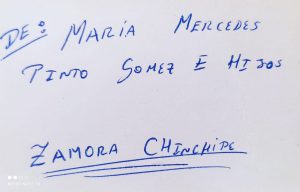 DE: MARÍA MERCEDES
PINTO GOMEZ E HIJOS
ZAMORA CHINCHIPE